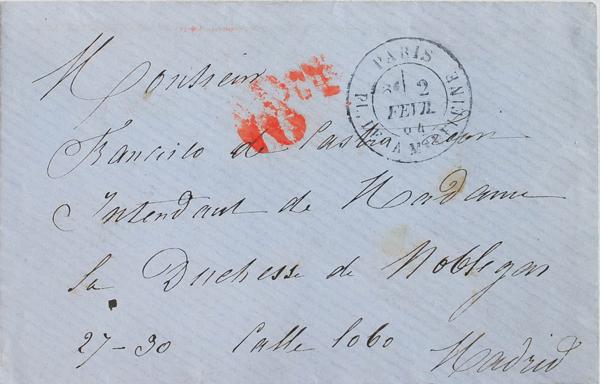 PARIS
2
FEVR.
64
PL. DE LA MADELEINE
10
Monsieur
Francisco de Castro
Intendant de Madame
La Duchesse de Noblejas
27-30 Calle Lobo Madrid